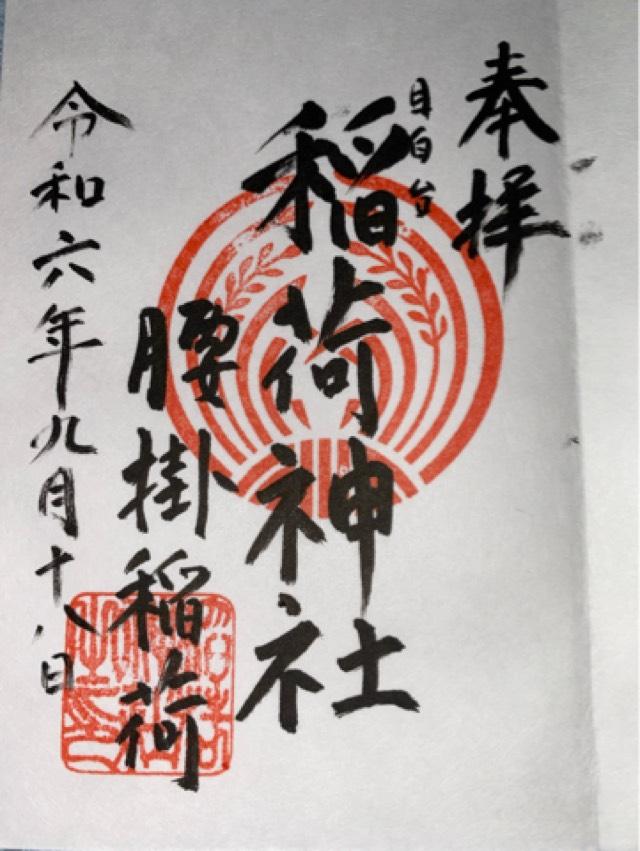 奉拝
目白台
稲荷神社
腰掛稲荷
令和六年九月十八日